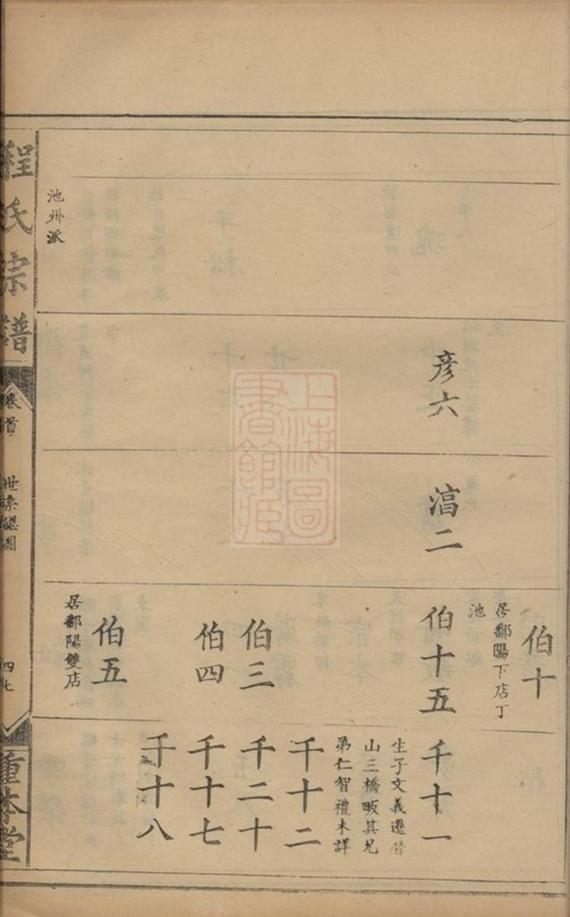 彦六
湻二
伯十
居鄱陽下店丁
池
伯十五
千十一
生子文義遷
山三橋畈其兄
弟仁智禮未詳
千十二
伯三
千二十
伯四
千十七
千十八
伯五
居鄱陽雙店
池州派
程氏宗譜
卷首
世系總圖
四七
重本堂
上海圖
書館藏